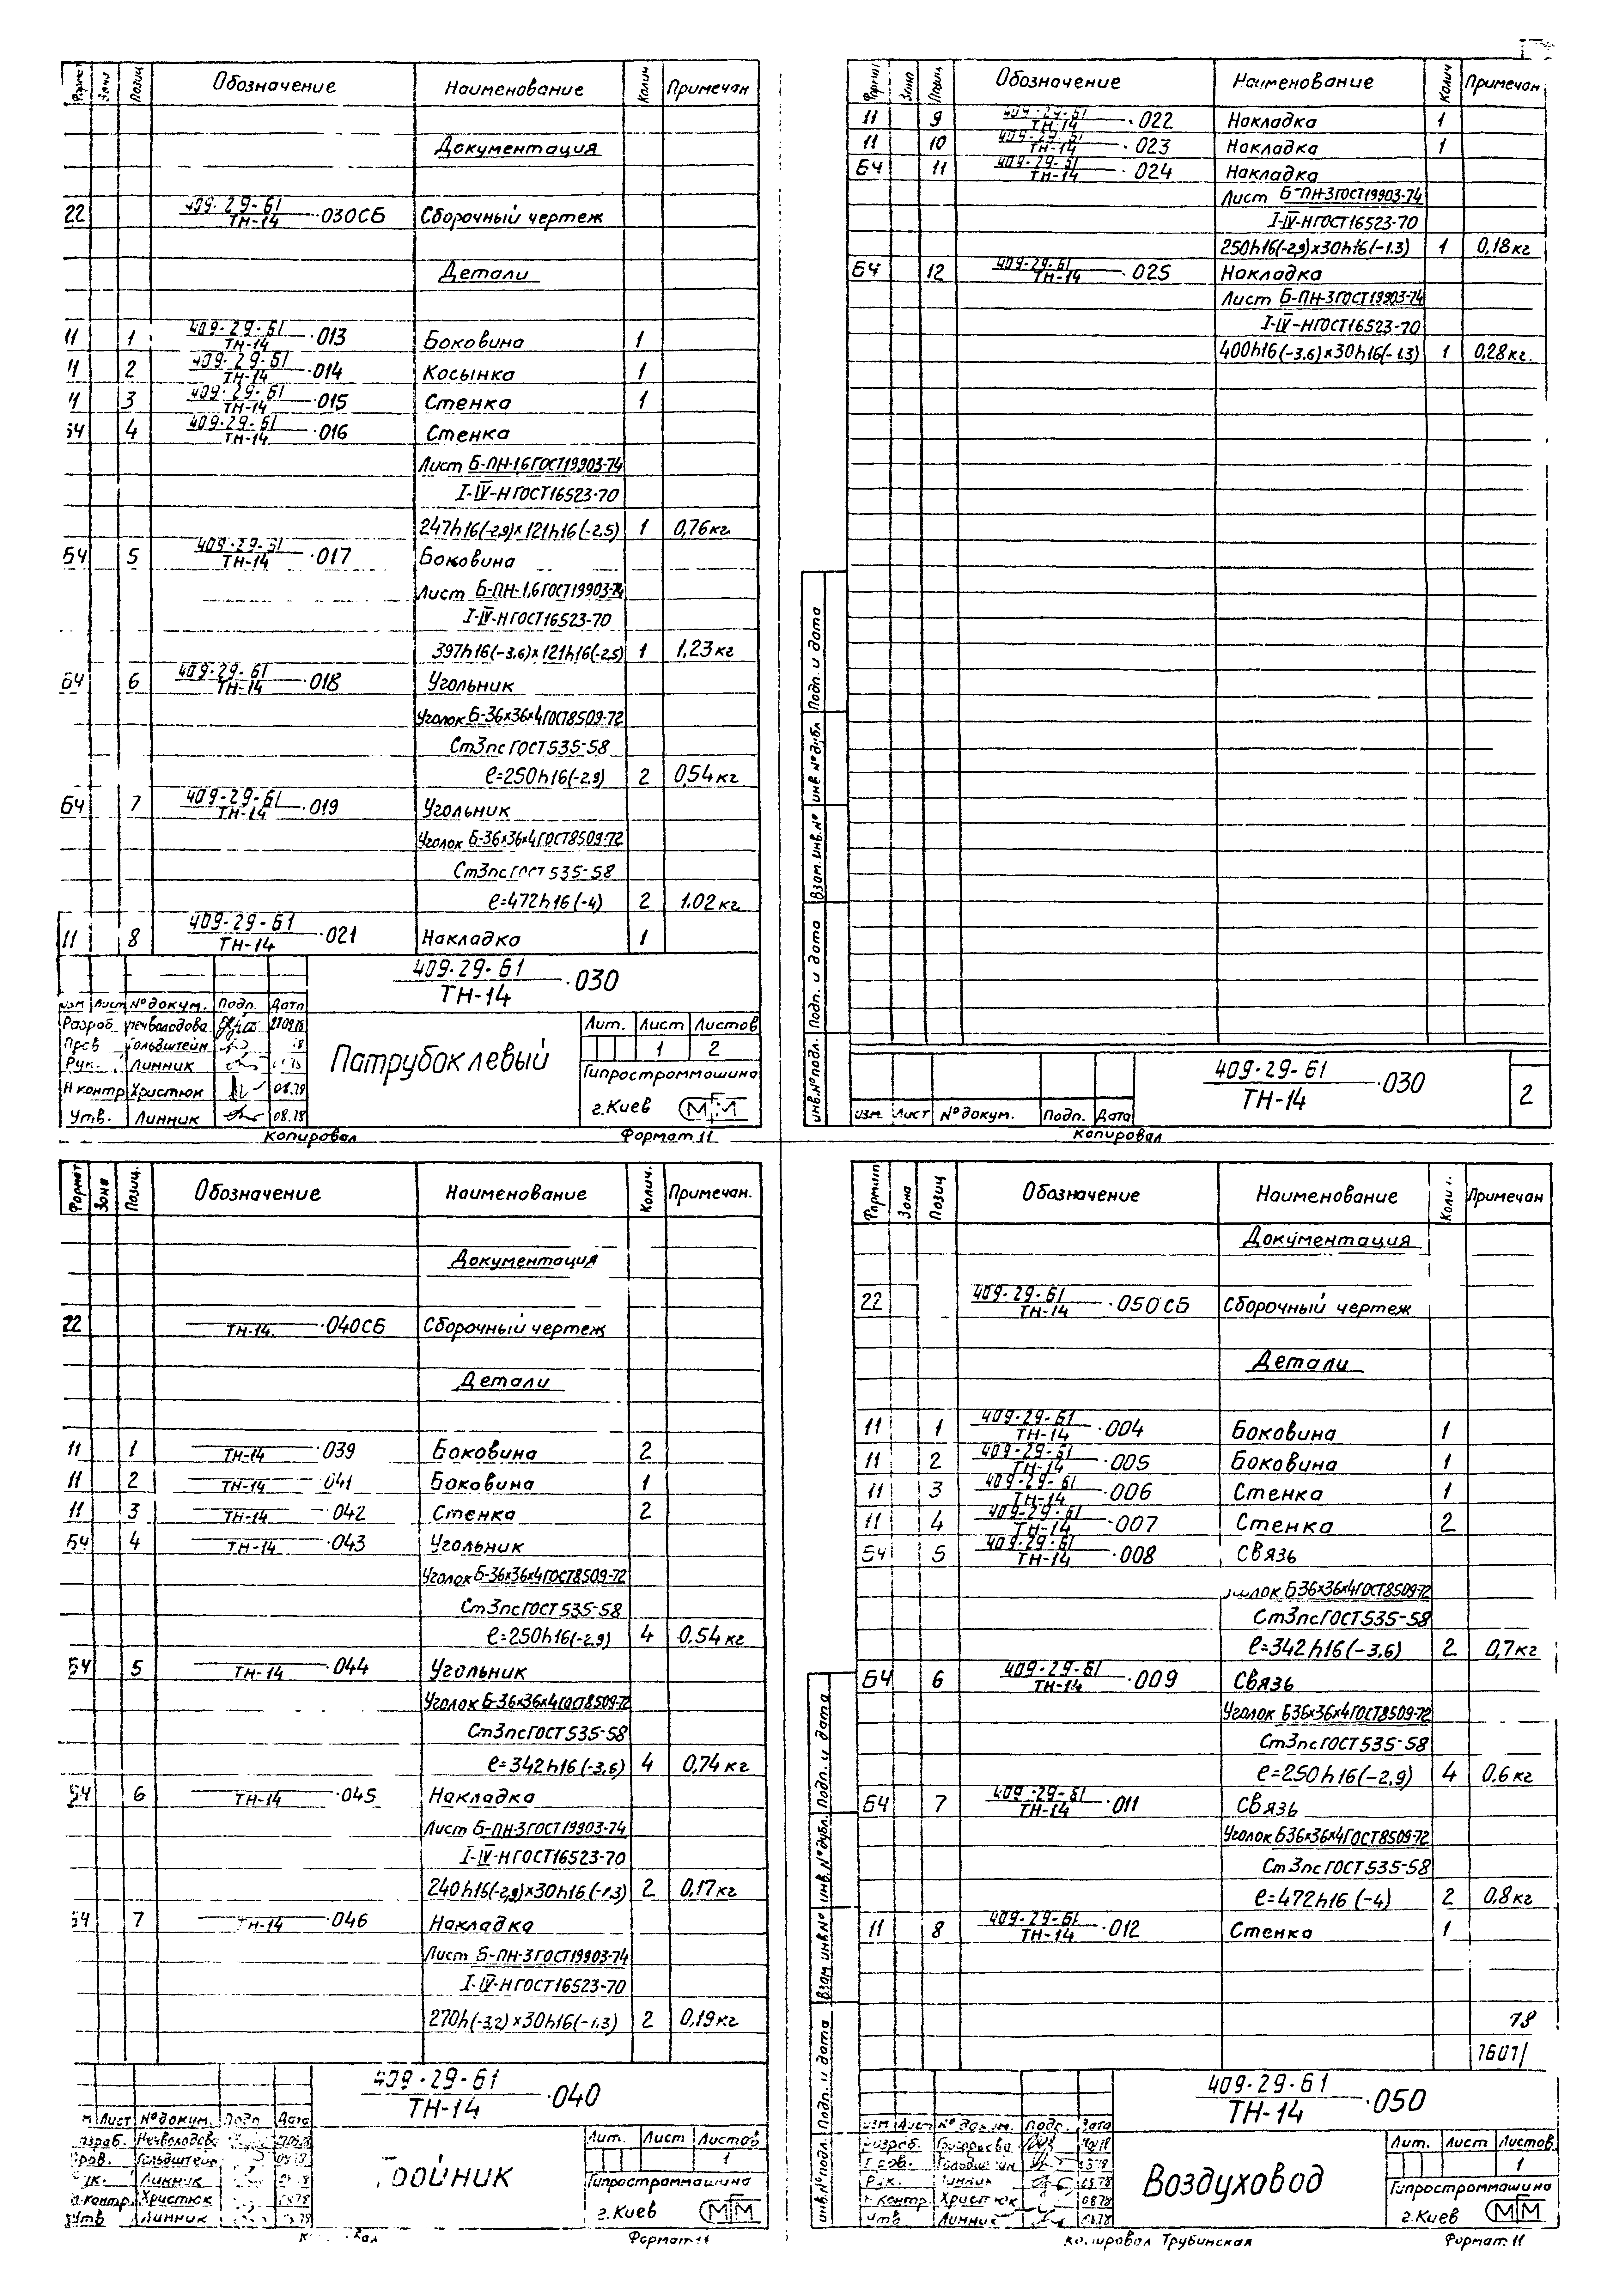 Формат Зона Позиц Обозначение Наименование Колич Примечан
Документация
22 409-29-61/ТН-14 ·030СБ Сборочный чертеж
Детали
11 1 409-29-61/ТН-14 ·013 Боковина 1
11 2 409-29-61/ТН-14 ·014 Косынка 1
11 3 409-29-61/ТН-14 ·015 Стенка 1
БЧ 4 409-29-61/ТН-14 ·016 Стенка
Лист Б-ПН-1,6 ГОСТ19903-74
I-IV-Н ГОСТ16523-70
247h16(-2,9)×121h16(-2,5) 1 0,76кг
БЧ 5 409-29-61/ТН-14 ·017 Боковина
Лист Б-ПН-1,6 ГОСТ19903-74
I-IV-Н ГОСТ16523-70
397h16(-3,6)×121h16(-2,5) 1 1,23кг
БЧ 6 409-29-61/ТН-14 ·018 Угольник
Уголок Б-36×36×4 ГОСТ8509-72
Ст3пс ГОСТ535-58
ℓ=250h16(-2,9) 2 0,54кг
БЧ 7 409-29-61/ТН-14 ·019 Угольник
Уголок Б-36×36×4 ГОСТ8509-72
Ст3пс ГОСТ535-58
ℓ=472h16(-4) 2 1.02кг
11 8 409-29-61/ТН-14 ·021 Накладка 1
409-29-61/ТН-14 ·030
изм Лист №докум. Подп. Дата
Разраб Нечволодова
Пров Гольдштейн
Рук. Линник
Н контр Христюк 08.78
Утв. Линник 08.78
Патрубок левый
Лит. Лист Листов
1 2
Гипростроммашина
г.Киев МГМ
Копировал Формат 11
Формат Зона Позиц Обозначение Наименование Колич Примечан
11 9 409-29-61/ТН-14 ·022 Накладка 1
11 10 409-29-61/ТН-14 ·023 Накладка 1
БЧ 11 409-29-61/ТН-14 ·024 Накладка
Лист Б-ПН-3 ГОСТ19903-74
I-IV-Н ГОСТ16523-70
250h16(-2,9)×30h16(-1.3) 1 0,18кг
БЧ 12 409-29-61/ТН-14 ·025 Накладка
Лист Б-ПН-3 ГОСТ19903-74
I-IV-Н ГОСТ16523-70
400h16(-3,6)×30h16(-1.3) 1 0,28кг.
инв.№подл. Подп. и дата Взам.инв.№ инв №дубл Подп. и дата
409-29-61/ТН-14 ·030
2
изм. Лист №докум. Подп. Дата
Копировал
Формат Зона Позиц. Обозначение Наименование Колич. Примечан.
Документация
22 ТН-14 ·040СБ Сборочный чертеж
Детали
11 1 ТН-14 ·039 Боковина 2
11 2 ТН-14 ·041 Боковина 1
11 3 ТН-14 ·042 Стенка 2
БЧ 4 ТН-14 ·043 Угольник
Уголок Б-36×36×4 ГОСТ8509-72
Ст3пс ГОСТ535-58
ℓ=250h16(-2,9) 4 0.54кг
БЧ 5 ТН-14 ·044 Угольник
Уголок Б-36×36×4 ГОСТ8509-72
Ст3пс ГОСТ535-58
ℓ=342h16(-3,6) 4 0,74кг
БЧ 6 ТН-14 ·045 Накладка
Лист Б-ПН-3 ГОСТ19903-74
I-IV-Н ГОСТ16523-70
240h16(-2,9)×30h16(-1.3) 2 0.17кг
БЧ 7 ТН-14 ·046 Накладка
Лист Б-ПН-3 ГОСТ19903-74
I-IV-Н ГОСТ16523-70
270h(-3,2)×30h16(-1.3) 2 0,19кг
409-29-61/ТН-14 ·040
Лист №докум. Подп Дата
Нечволодова
Гольдштейн
Линник
Н.контр. Христюк
Утв Линник
Тройник
Лит. Лист Листов
1
Гипростроммашина
г.Киев МГМ
Формат 11
Формат Зона Позиц Обозначение Наименование Примечан
Документация
22 409-29-61/ТН-14 ·050СБ Сборочный чертеж
Детали
11 1 409-29-61/ТН-14 ·004 Боковина 1
11 2 409-29-61/ТН-14 ·005 Боковина 1
11 3 409-29-61/ТН-14 ·006 Стенка 1
11 4 409-29-61/ТН-14 ·007 Стенка 2
БЧ 5 409-29-61/ТН-14 ·008 Связь
Уголок Б36×36×4 ГОСТ8509-72
Ст3пс ГОСТ535-58
ℓ=342h16(-3,6) 2 0,7кг
БЧ 6 409-29-61/ТН-14 ·009 Связь
Уголок Б36×36×4 ГОСТ8509-72
Ст3пс ГОСТ535-58
ℓ=250h16(-2,9) 4 0,6кг
БЧ 7 409-29-61/ТН-14 ·011 Связь
Уголок Б36×36×4 ГОСТ8509-72
Ст3пс ГОСТ535-58
ℓ=472h16(-4) 2 0.8кг
11 8 409-29-61/ТН-14 ·012 Стенка 1
инв.№подл. Подп. и дата Взам инв.№ инв.№дубл. Подп. и дата
409-29-61/ТН-14 ·050
изм Лист №докум. подп. Дата
Линник
контр Христюк 08.78
Утв Линник
Воздуховод
Лит. Лист Листов
1
Гипростроммашина
г.Киев МГМ
Копировал Трубинская Формат 11